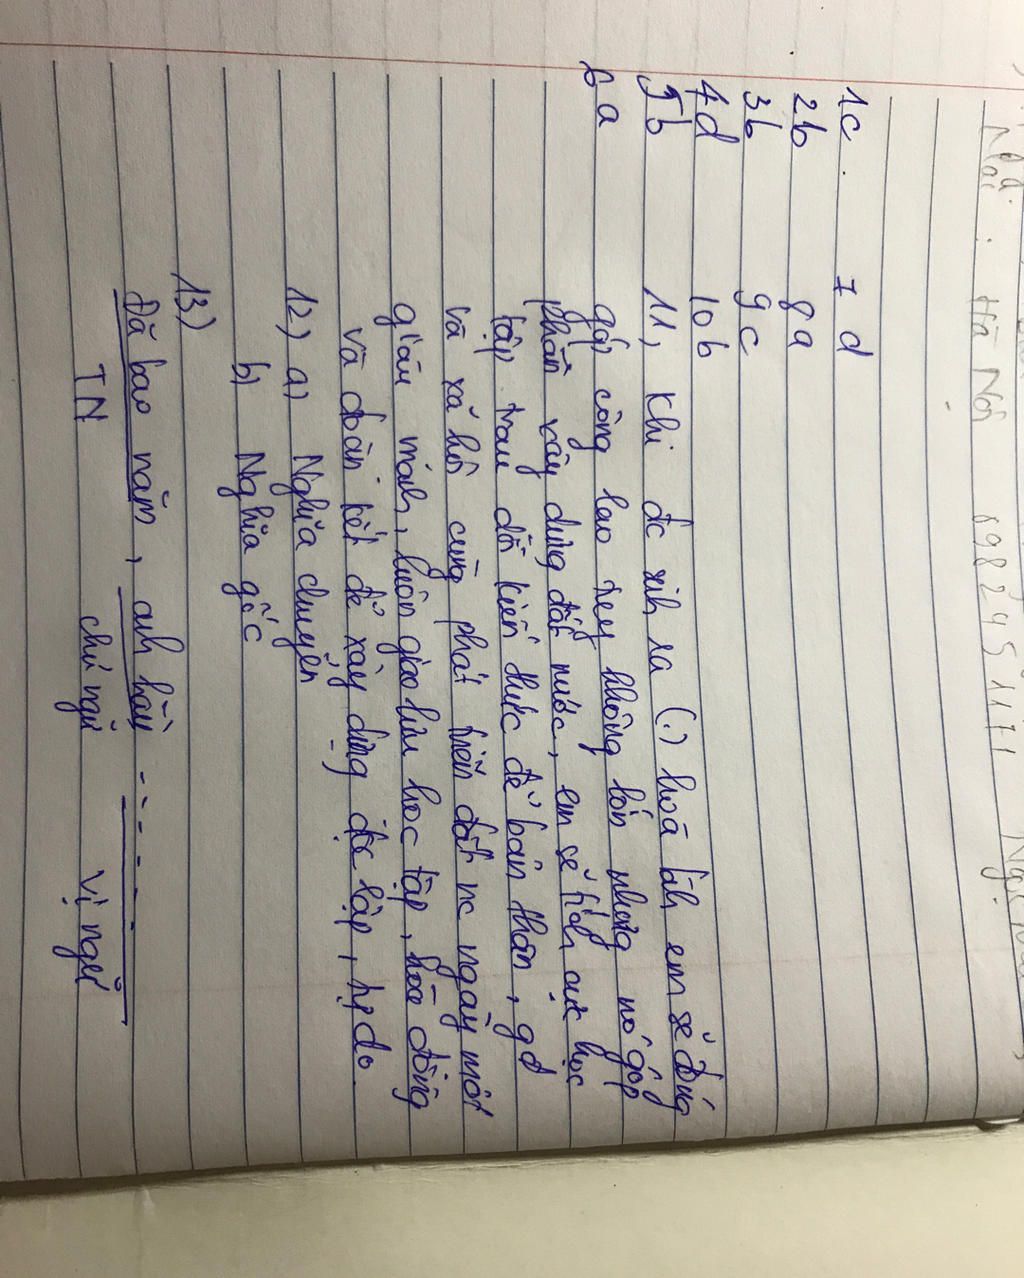 Hà Nội 0982451171
1c. 7 d
2b 8a
3b 9c
4d 10 b
5b 11, Khi đc sinh ra (.) hoà bình em sẽ đóng
6 a góp công lao tuy không lớn nhưng nó góp
phần xây dựng đất nước, em sẽ tích cực học
tập trau dồi kiến thức để bản thân, gđ
và xã hội cùng phát triển đất nc ngày một
giàu mạnh, luôn giao lưu học tập, hòa đồng
và đoàn kết để xây dựng độc lập, tự do.
12) a) Nghĩa chuyển
b) Nghĩa gốc
13)
Đã bao năm, anh hùng - - - - - -
TN chủ ngữ vị ngữ